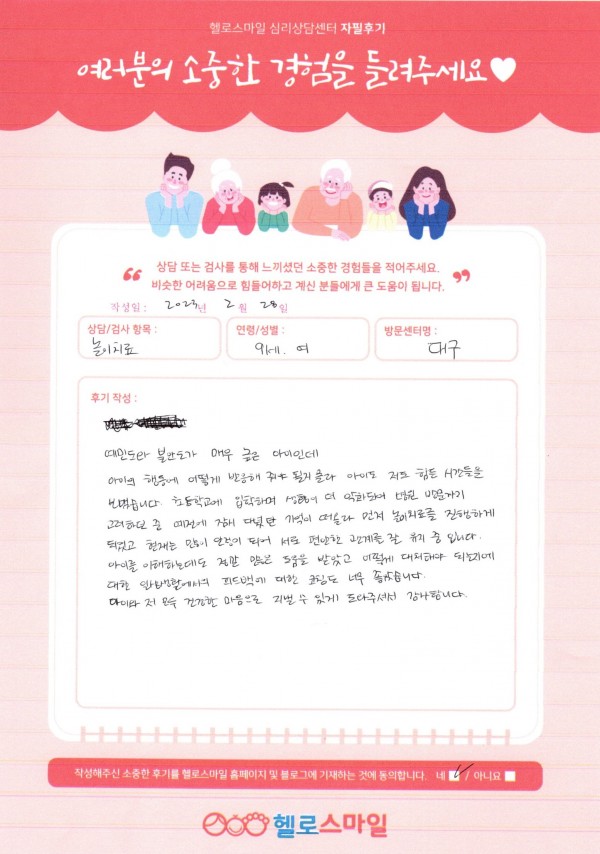 헬로스마일 심리상담센터 자필후기
여러분의 소중한 경험을 들려주세요♥
상담 또는 검사를 통해 느끼셨던 소중한 경험들을 적어주세요.
비슷한 어려움으로 힘들어하고 계신 분들에게 큰 도움이 됩니다.
작성일 : 2023년 2월 28일
상담/검사 항목 :
놀이치료
연령/성별 :
9세. 여
방문센터명 :
대구
후기 작성 :
예민도와 불안도가 매우 높은 아이인데
아이의 행동에 어떻게 반응해 줘야 될지 몰라 아이도 저도 힘든 시간들을
보냈습니다. 초등학교에 입학하며 상황이 더 악화되어 병원 방문까지
고려하던 중 예전에 잠깐 다녔던 기억이 떠올라 먼저 놀이치료를 진행하게
되었고 현재는 많이 안정이 되어 서로 편안한 관계를 잘 유지 중 입니다.
아이를 이해하는데도 정말 많은 도움을 받았고 어떻게 대처해야 되는지에
대한 피드백에 대한 코칭도 너무 좋았습니다.
아이와 저 모두 건강한 마음으로 지낼 수 있게 도와주셔서 감사합니다.
작성해주신 소중한 후기를 헬로스마일 홈페이지 및 블로그에 기재하는 것에 동의합니다. 네 ✓ / 아니요
헬로스마일